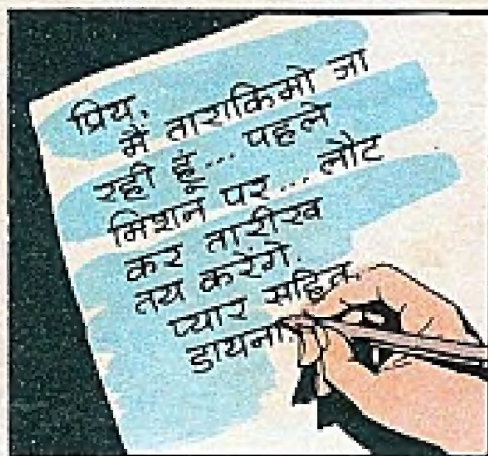 प्रिय,
मैं ताराकिमो जा
रही हूं... पहले
मिशन पर... लौट
कर तारीख
तय करेंगे.
प्यार सहित,
डायना.